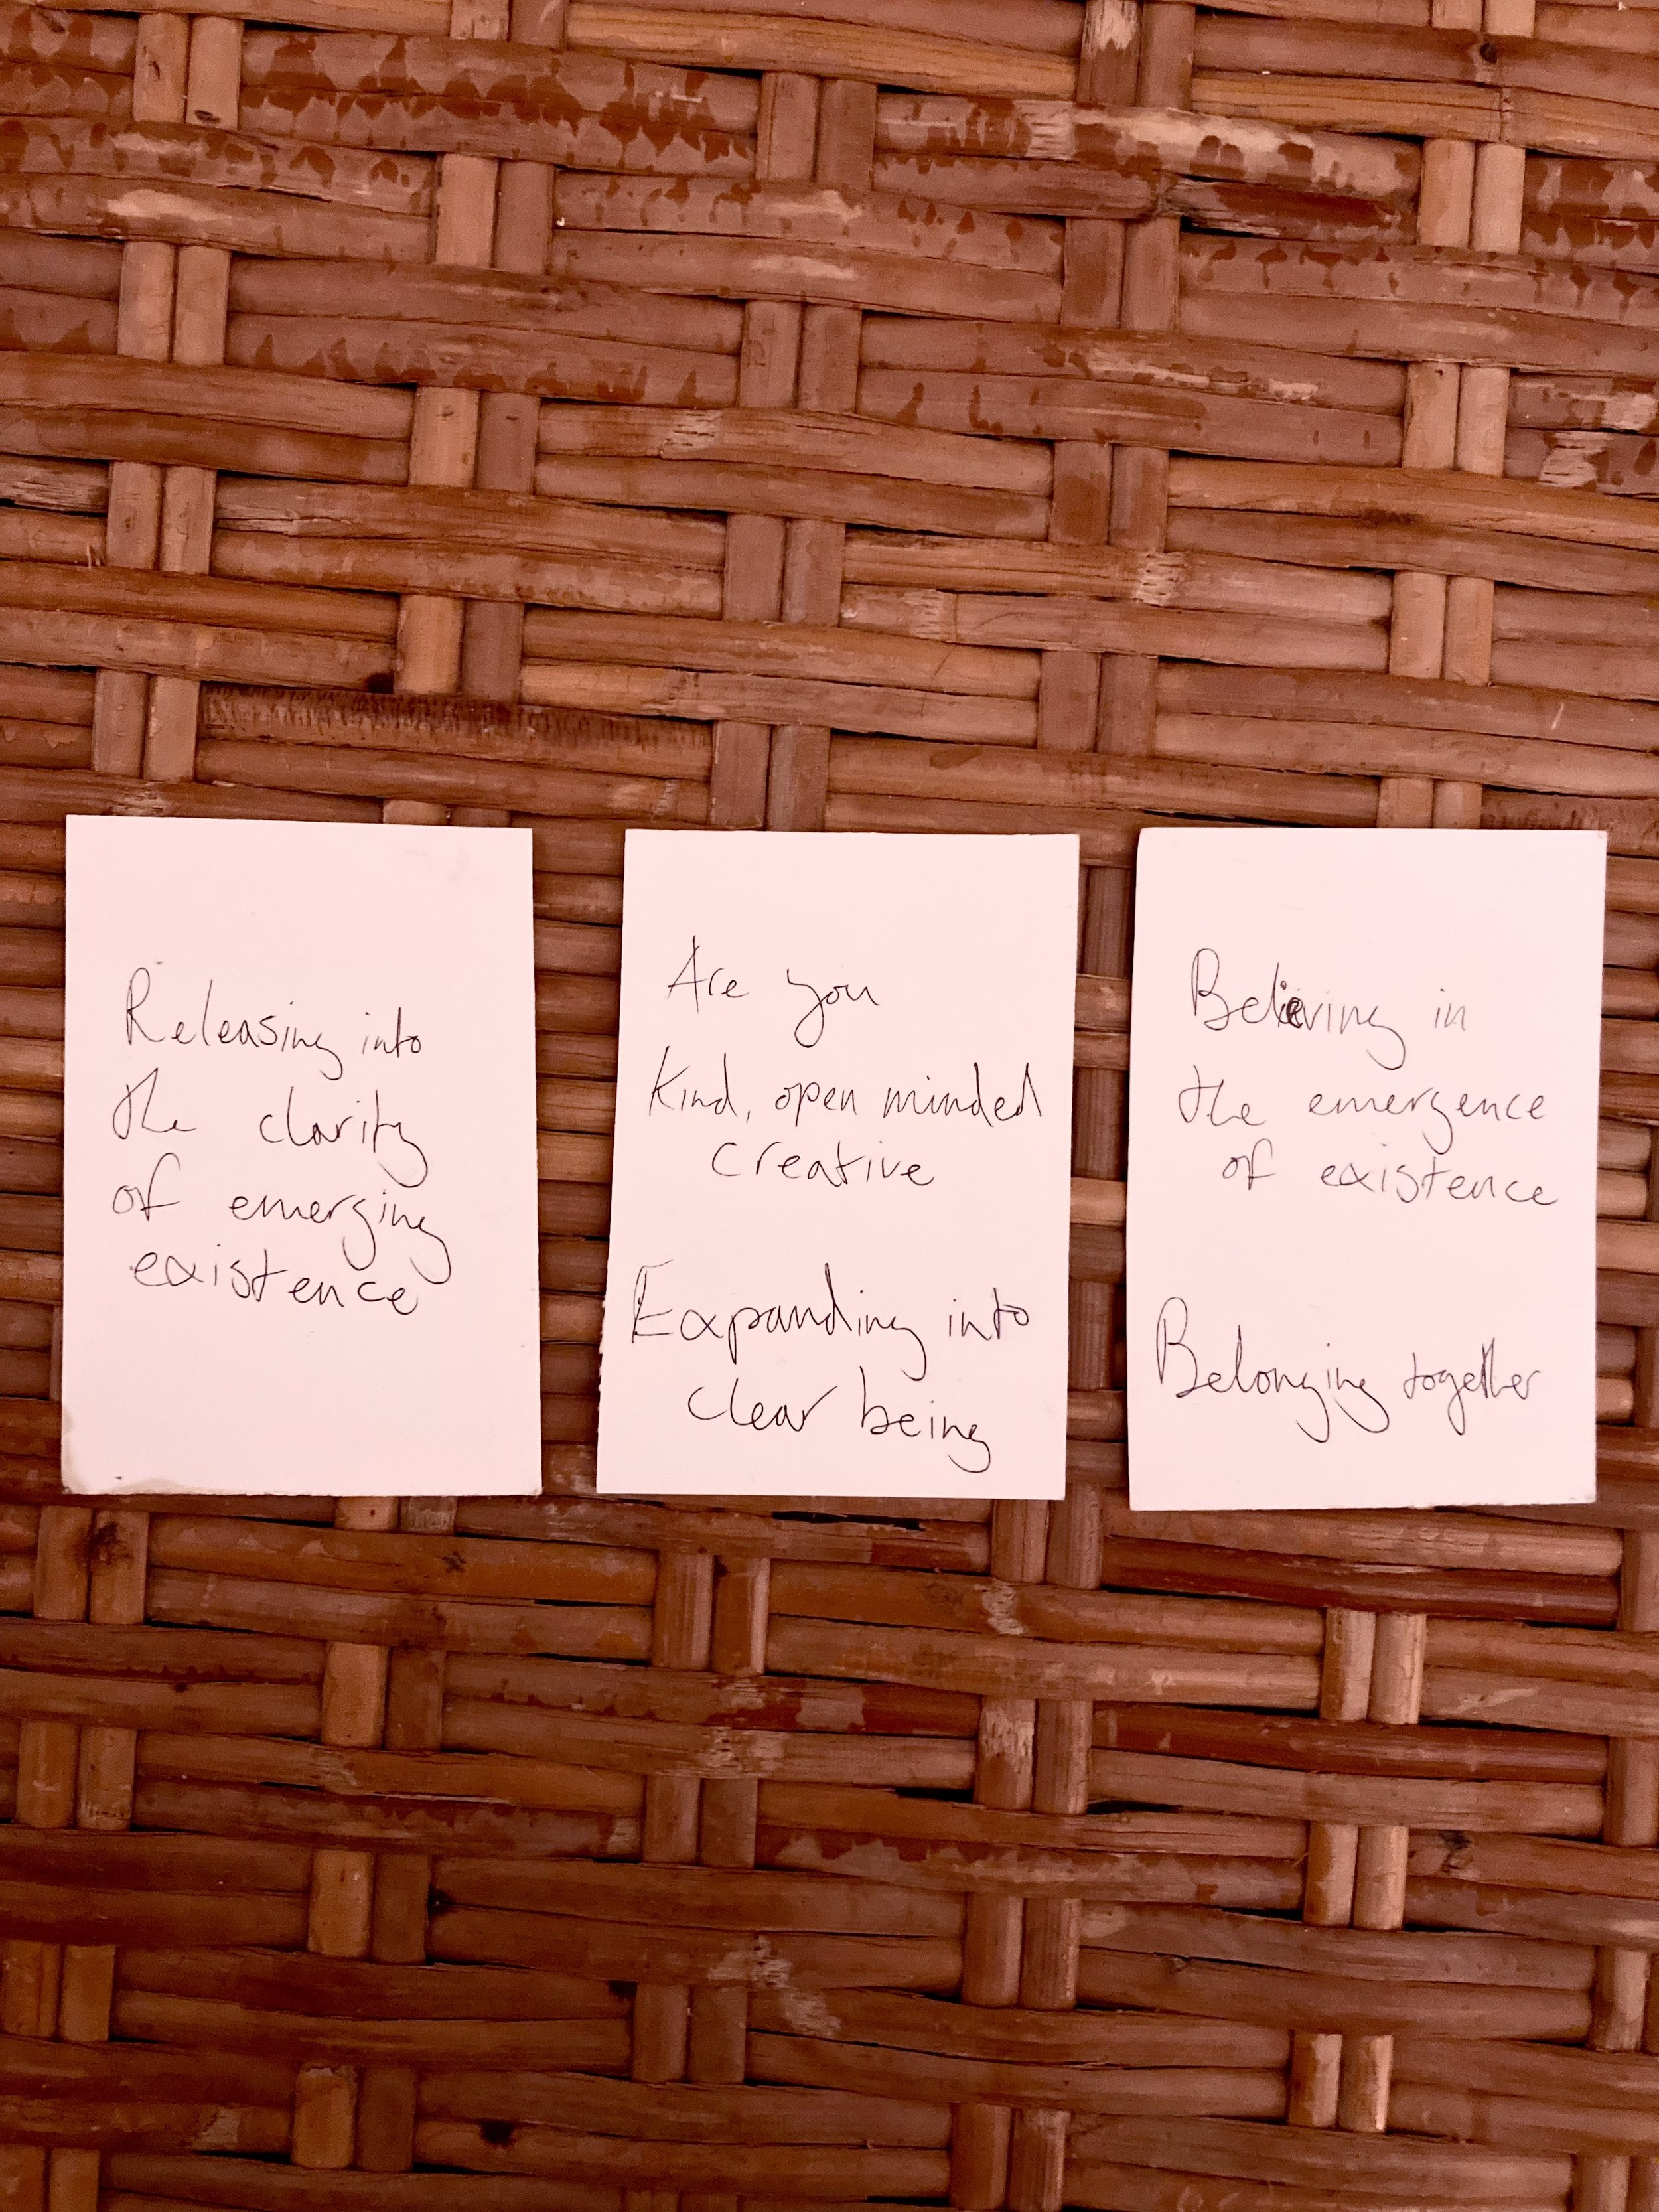 Releasing into
the clarity
of emerging
existence
Are you
Kind, open minded
creative
Expanding into
clear being
Believing in
the emergence
of existence
Belonging together